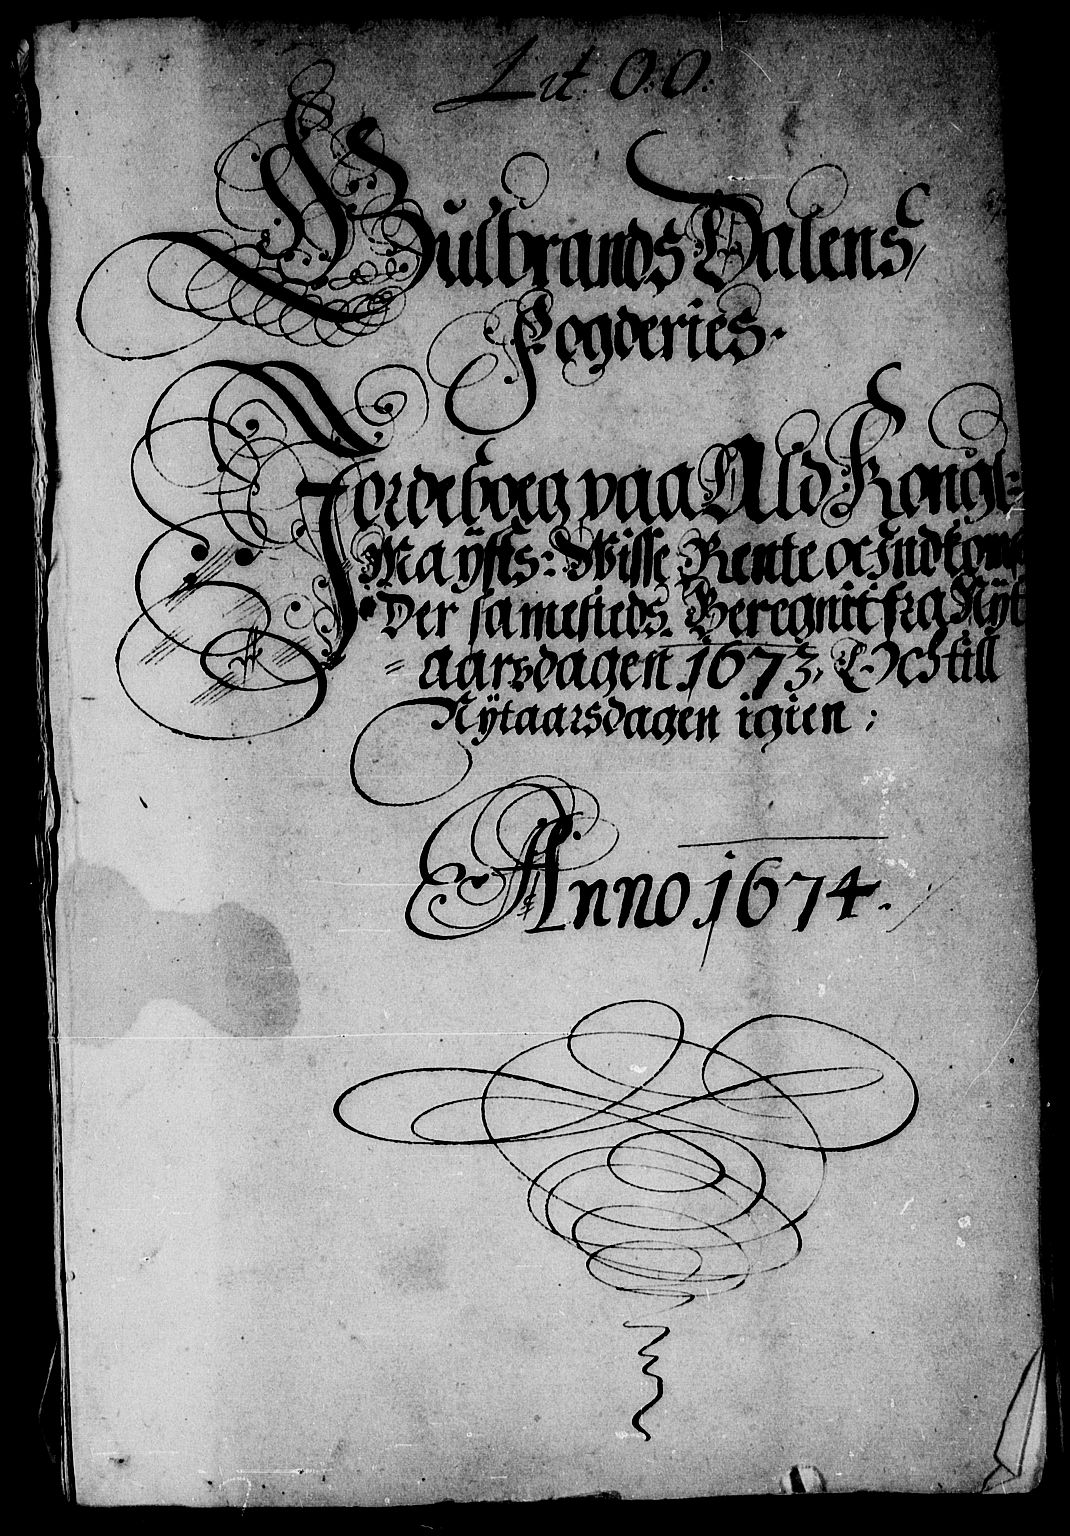 Lit. O:O:
Gulbrands Dalens
Fogderies.
Jordeboeg paa Ald Kongl:
Maysts: Wisse Rente oc Indkomst
Der samesteds. Beregnit fra Nÿt
= aarsdagen 1673, Och till
Nÿtaarsdagen igien ;
Anno 1674.